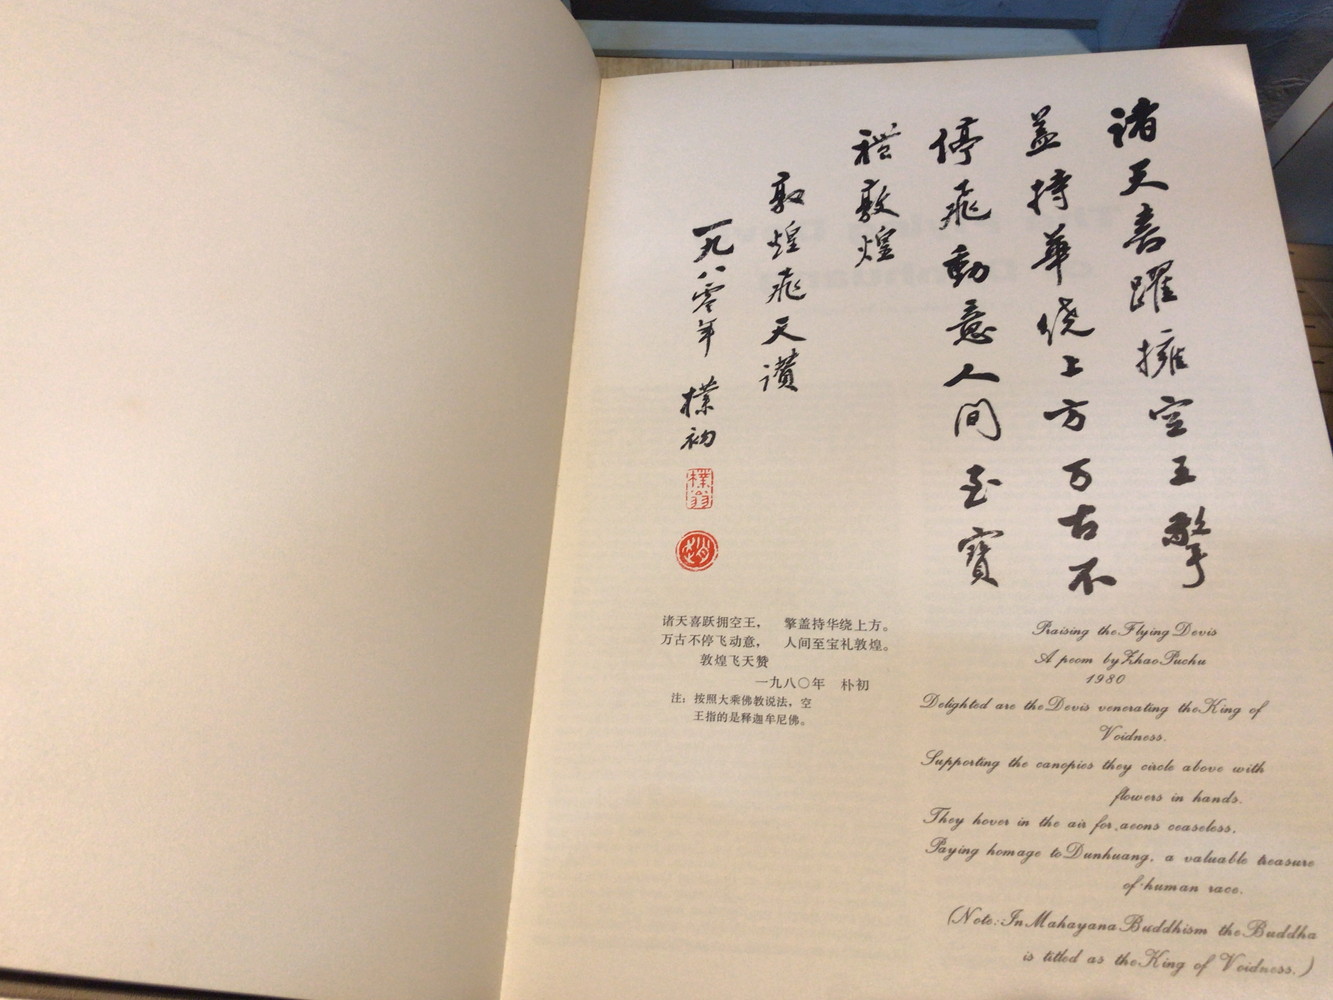 诸天喜躍擁空王擎
盖持華绕上方万古不
停飛動意人间至寶
禮敦煌
敦煌飛天讃
一九八零年 樸初
樸翁
趙
诸天喜跃拥空王， 擎盖持华绕上方。
万古不停飞动意， 人间至宝礼敦煌。
敦煌飞天赞
一九八〇年 朴初
注：按照大乘佛教说法，空
王指的是释迦牟尼佛。
Praising the Flying Devis
A poem by Zhao Puchu
1980
Delighted are the Devis venerating the King of
Voidness.
Supporting the canopies they circle above with
flowers in hands.
They hover in the air for aeons ceaseless,
Paying homage to Dunhuang, a valuable treasure
of human race.
(Note: In Mahayana Buddhism the Buddha
is titled as the King of Voidness.)